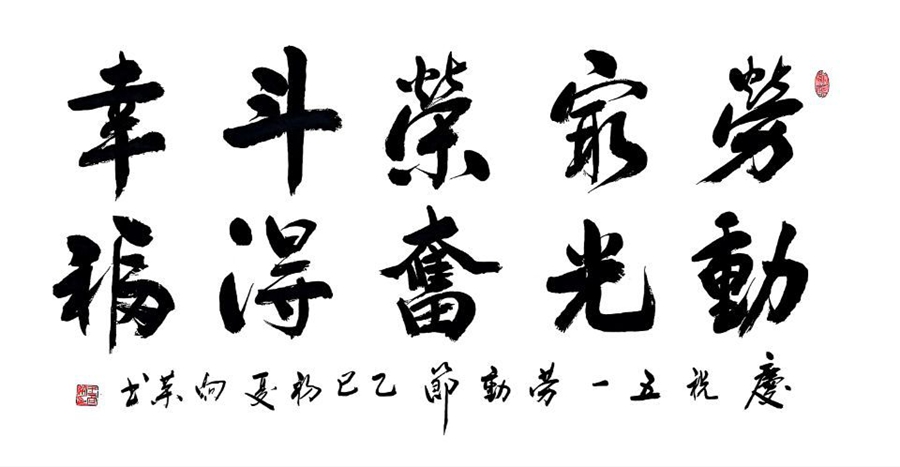 勞動
最光
榮奮
斗得
幸福
慶祝五一劳動節乙巳初夏向荣书